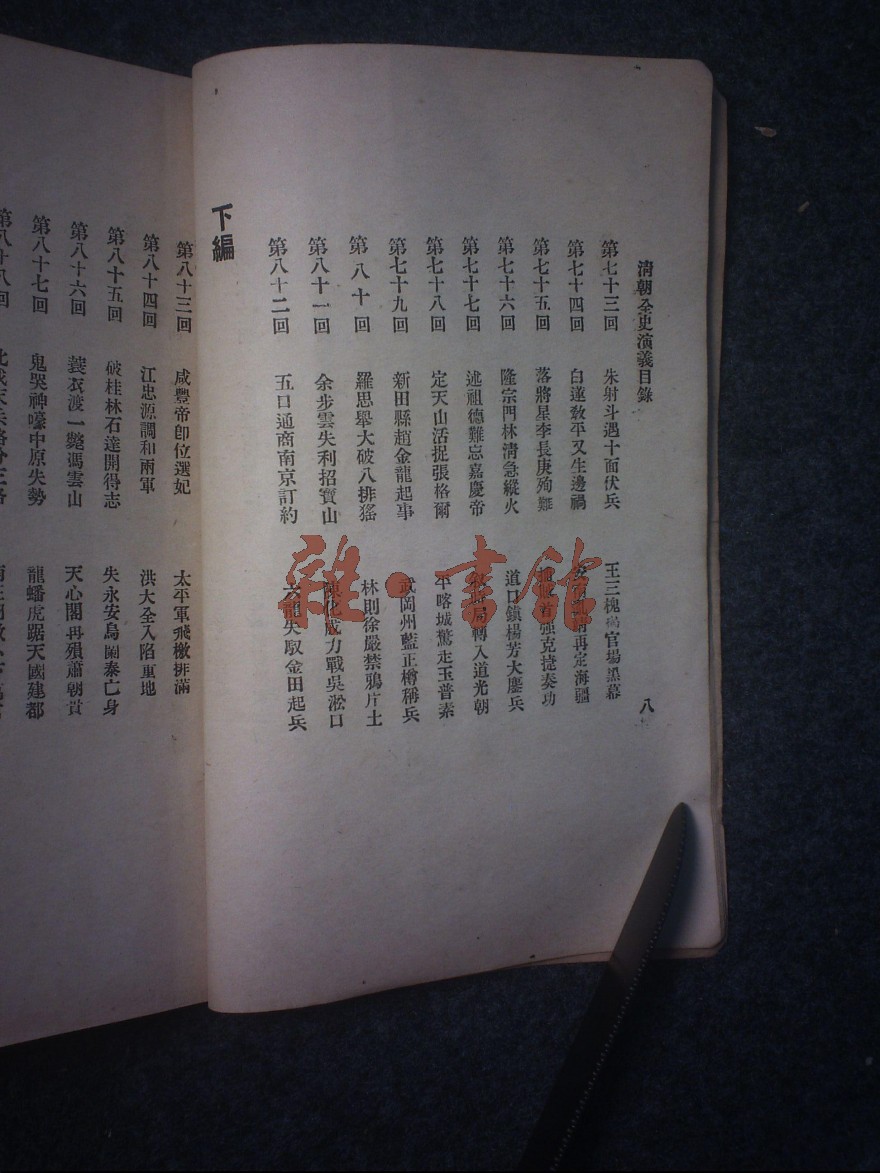 清朝全史演義目錄 八
第七十三回 朱射斗遇十面伏兵 王三槐 官場黑幕
第七十四回 白蓮敎平又生邊禍 再定海疆
第七十五回 落將星李長庚殉難 强克捷奏功
第七十六回 隆宗門林淸急縱火 道口鎭楊芳大鏖兵
第七十七回 述祖德難忘嘉慶帝 局轉入道光朝
第七十八回 定天山活捉張格爾 平喀城驚走玉普素
第七十九回 新田縣趙金龍起事 武岡州藍正樽稱兵
第八十回 羅思舉大破八排猺 林則徐嚴禁鴉片土
第八十一回 余步雲失利招寶山 陳化成力戰吳淞口
第八十二回 五口通商南京訂約 六龍失馭金田起兵
下編
第八十三回 咸豐帝卽位選妃 太平軍飛檄排滿
第八十四回 江忠源調和兩軍 洪大全入陷重地
第八十五回 破桂林石達開得志 失永安烏蘭泰亡身
第八十六回 蓑衣渡一斃馮雲山 天心閣再殞蕭朝貴
第八十七回 鬼哭神嚎中原失勢 龍蟠虎踞天國建都
第八十八回
雜·書館